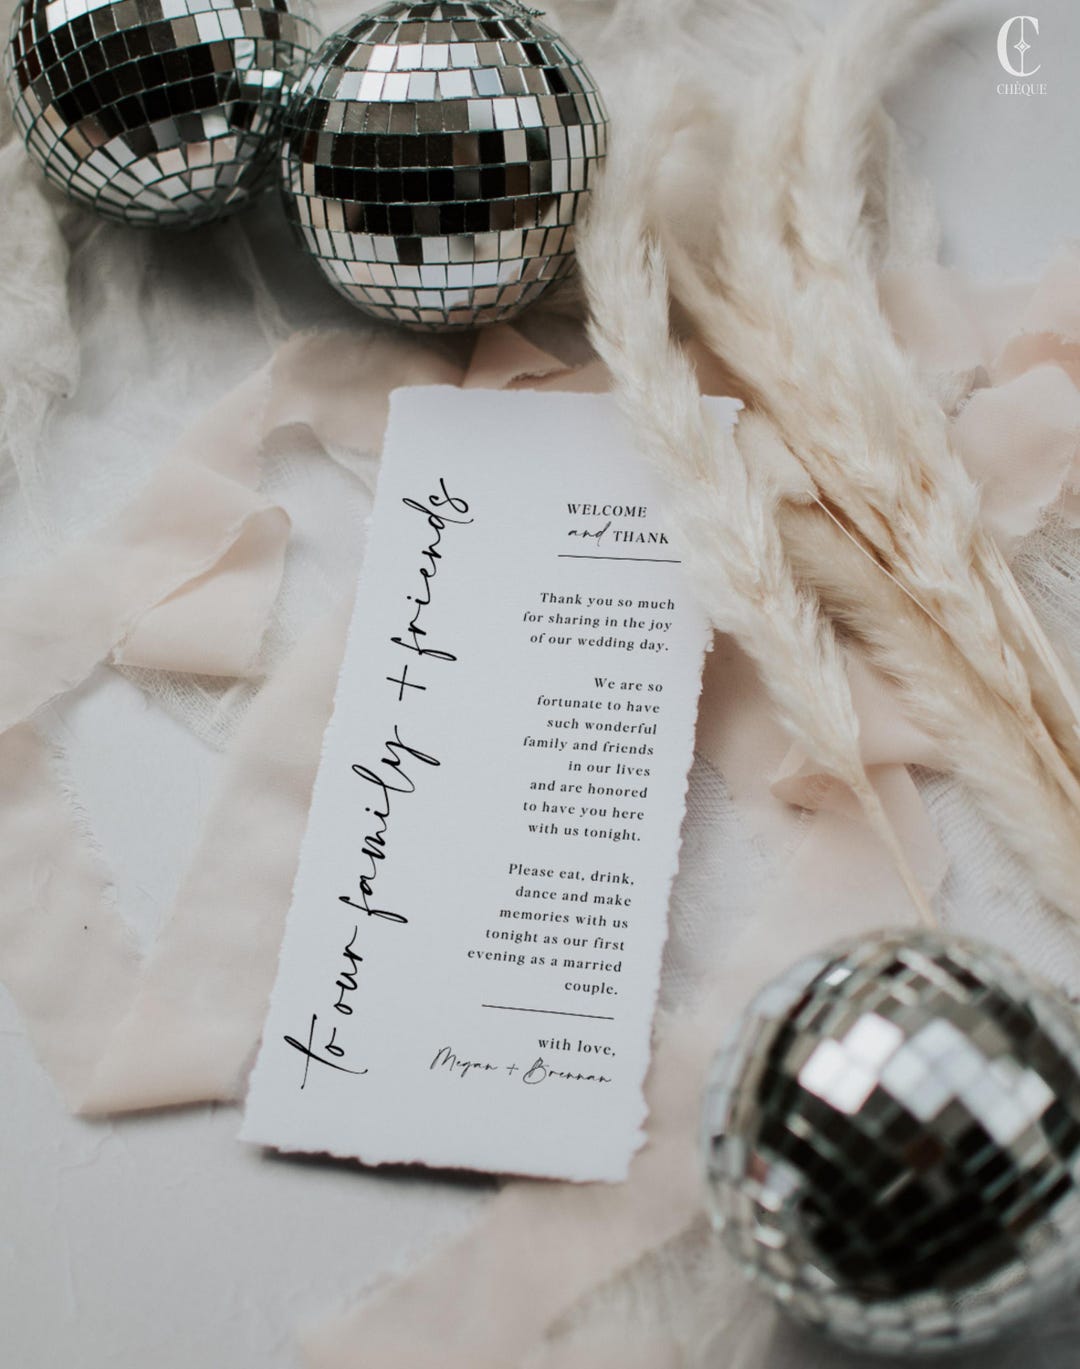 C
CHÈQUE
to our family + friends
WELCOME
and THANK
Thank you so much
for sharing in the joy
of our wedding day.
We are so
fortunate to have
such wonderful
family and friends
in our lives
and are honored
to have you here
with us tonight.
Please eat, drink,
dance and make
memories with us
tonight as our first
evening as a married
couple.
with love,
Megan + Brennan